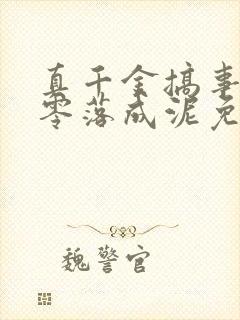 真千金搞事
零落成泥免
魏警官